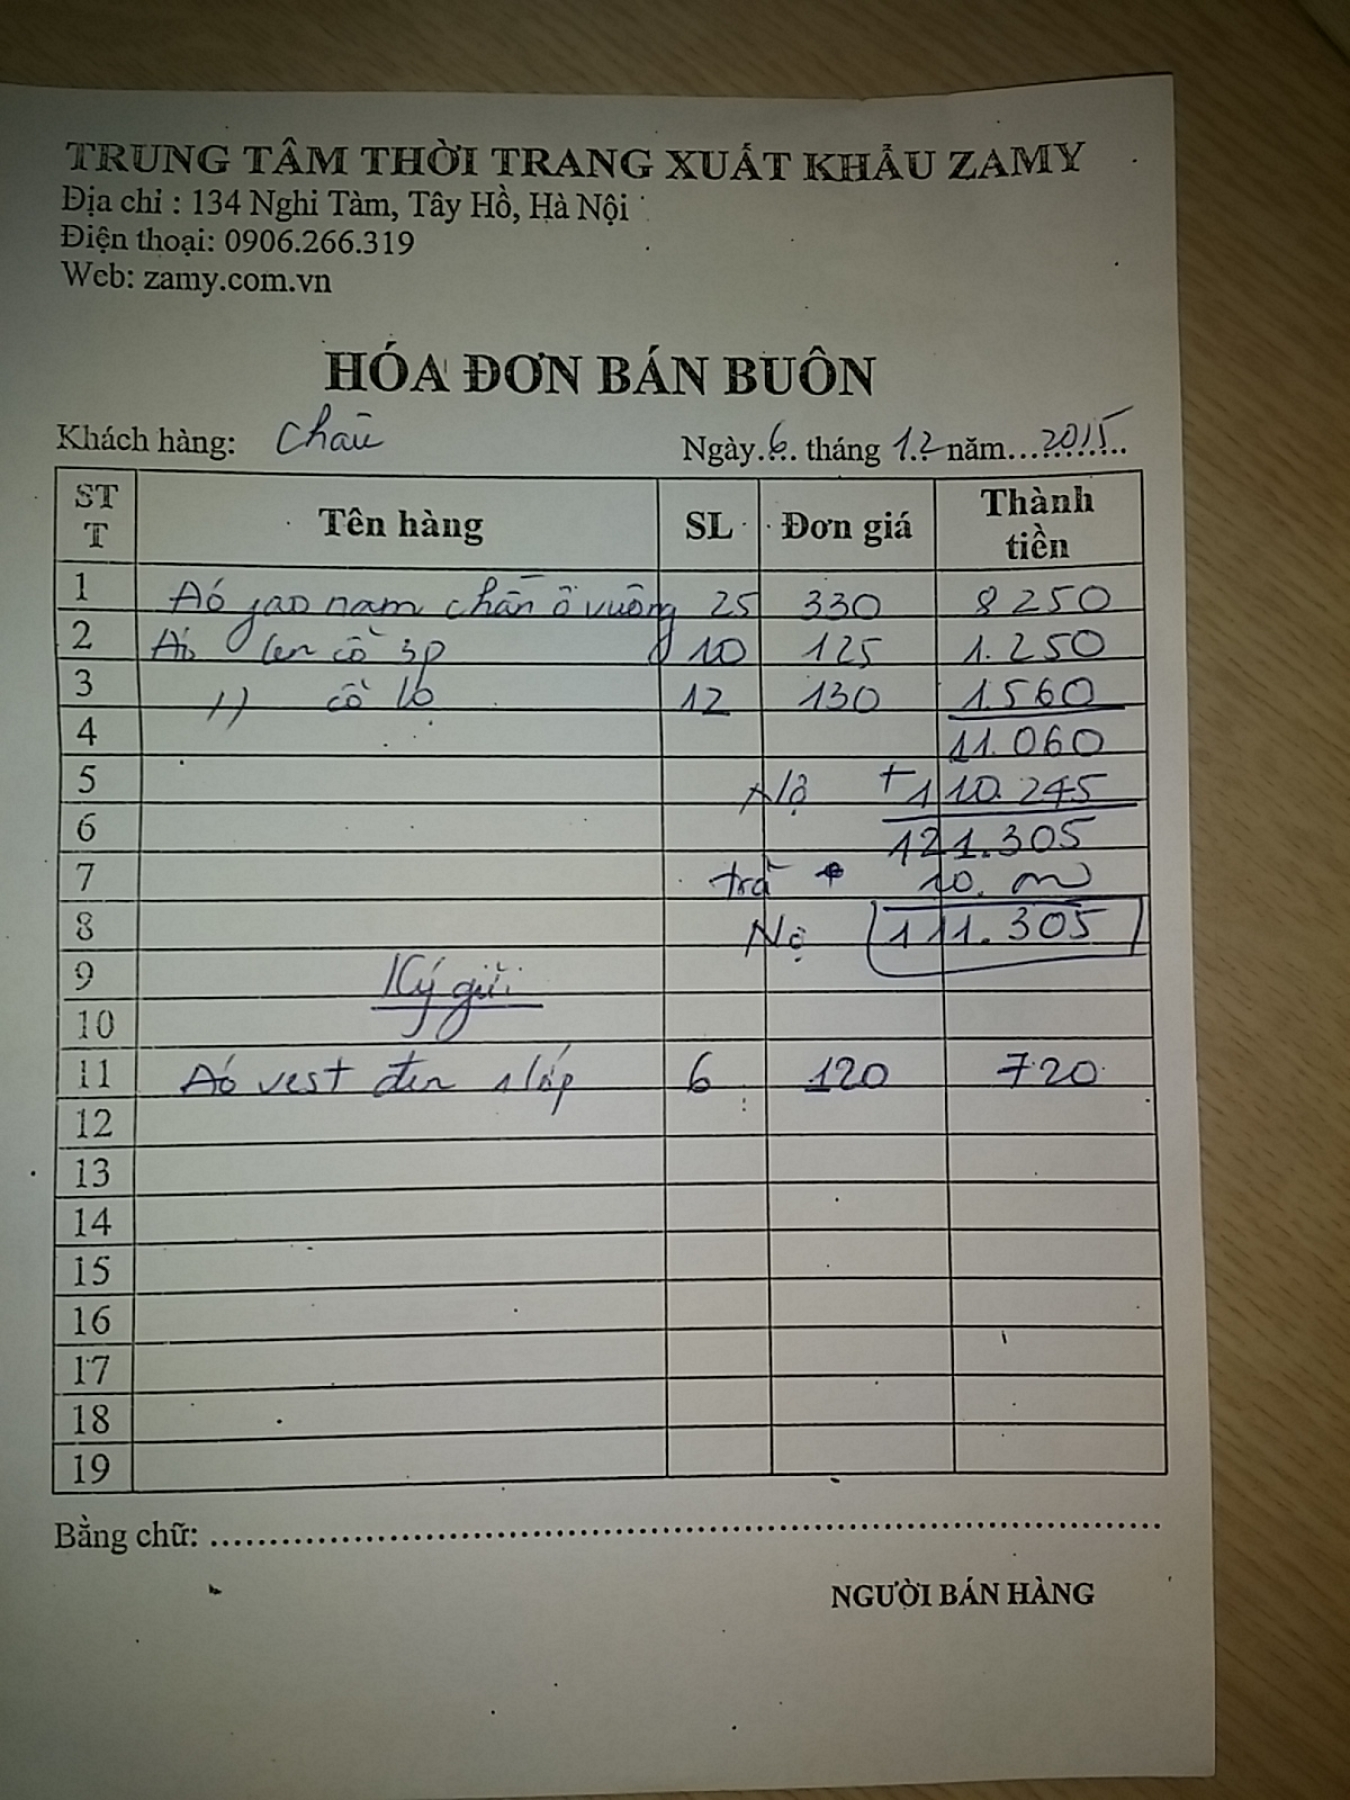 TRUNG TÂM THỜI TRANG XUẤT KHẨU ZAMY
Địa chỉ : 134 Nghi Tàm, Tây Hồ, Hà Nội
Điện thoại: 0906.266.319
Web: zamy.com.vn
HÓA ĐƠN BÁN BUÔN
Khách hàng: Châu Ngày 6 tháng 12 năm 2015
STT Tên hàng SL Đơn giá Thành tiền
1 Áo nam chần ô vuông 25 330 8250
2 Áo len cổ 3p 10 125 1.250
3 11 cổ lọ 12 130 1560
4 11.060
5 Nợ +110.245
6 121.305
7 trả 10.
8 Nợ 111.305
9 Ký gửi
10
11 Áo vest đen 1 lớp 6 120 720
12
13
14
15
16
17
18
19
Bằng chữ:
NGƯỜI BÁN HÀNG